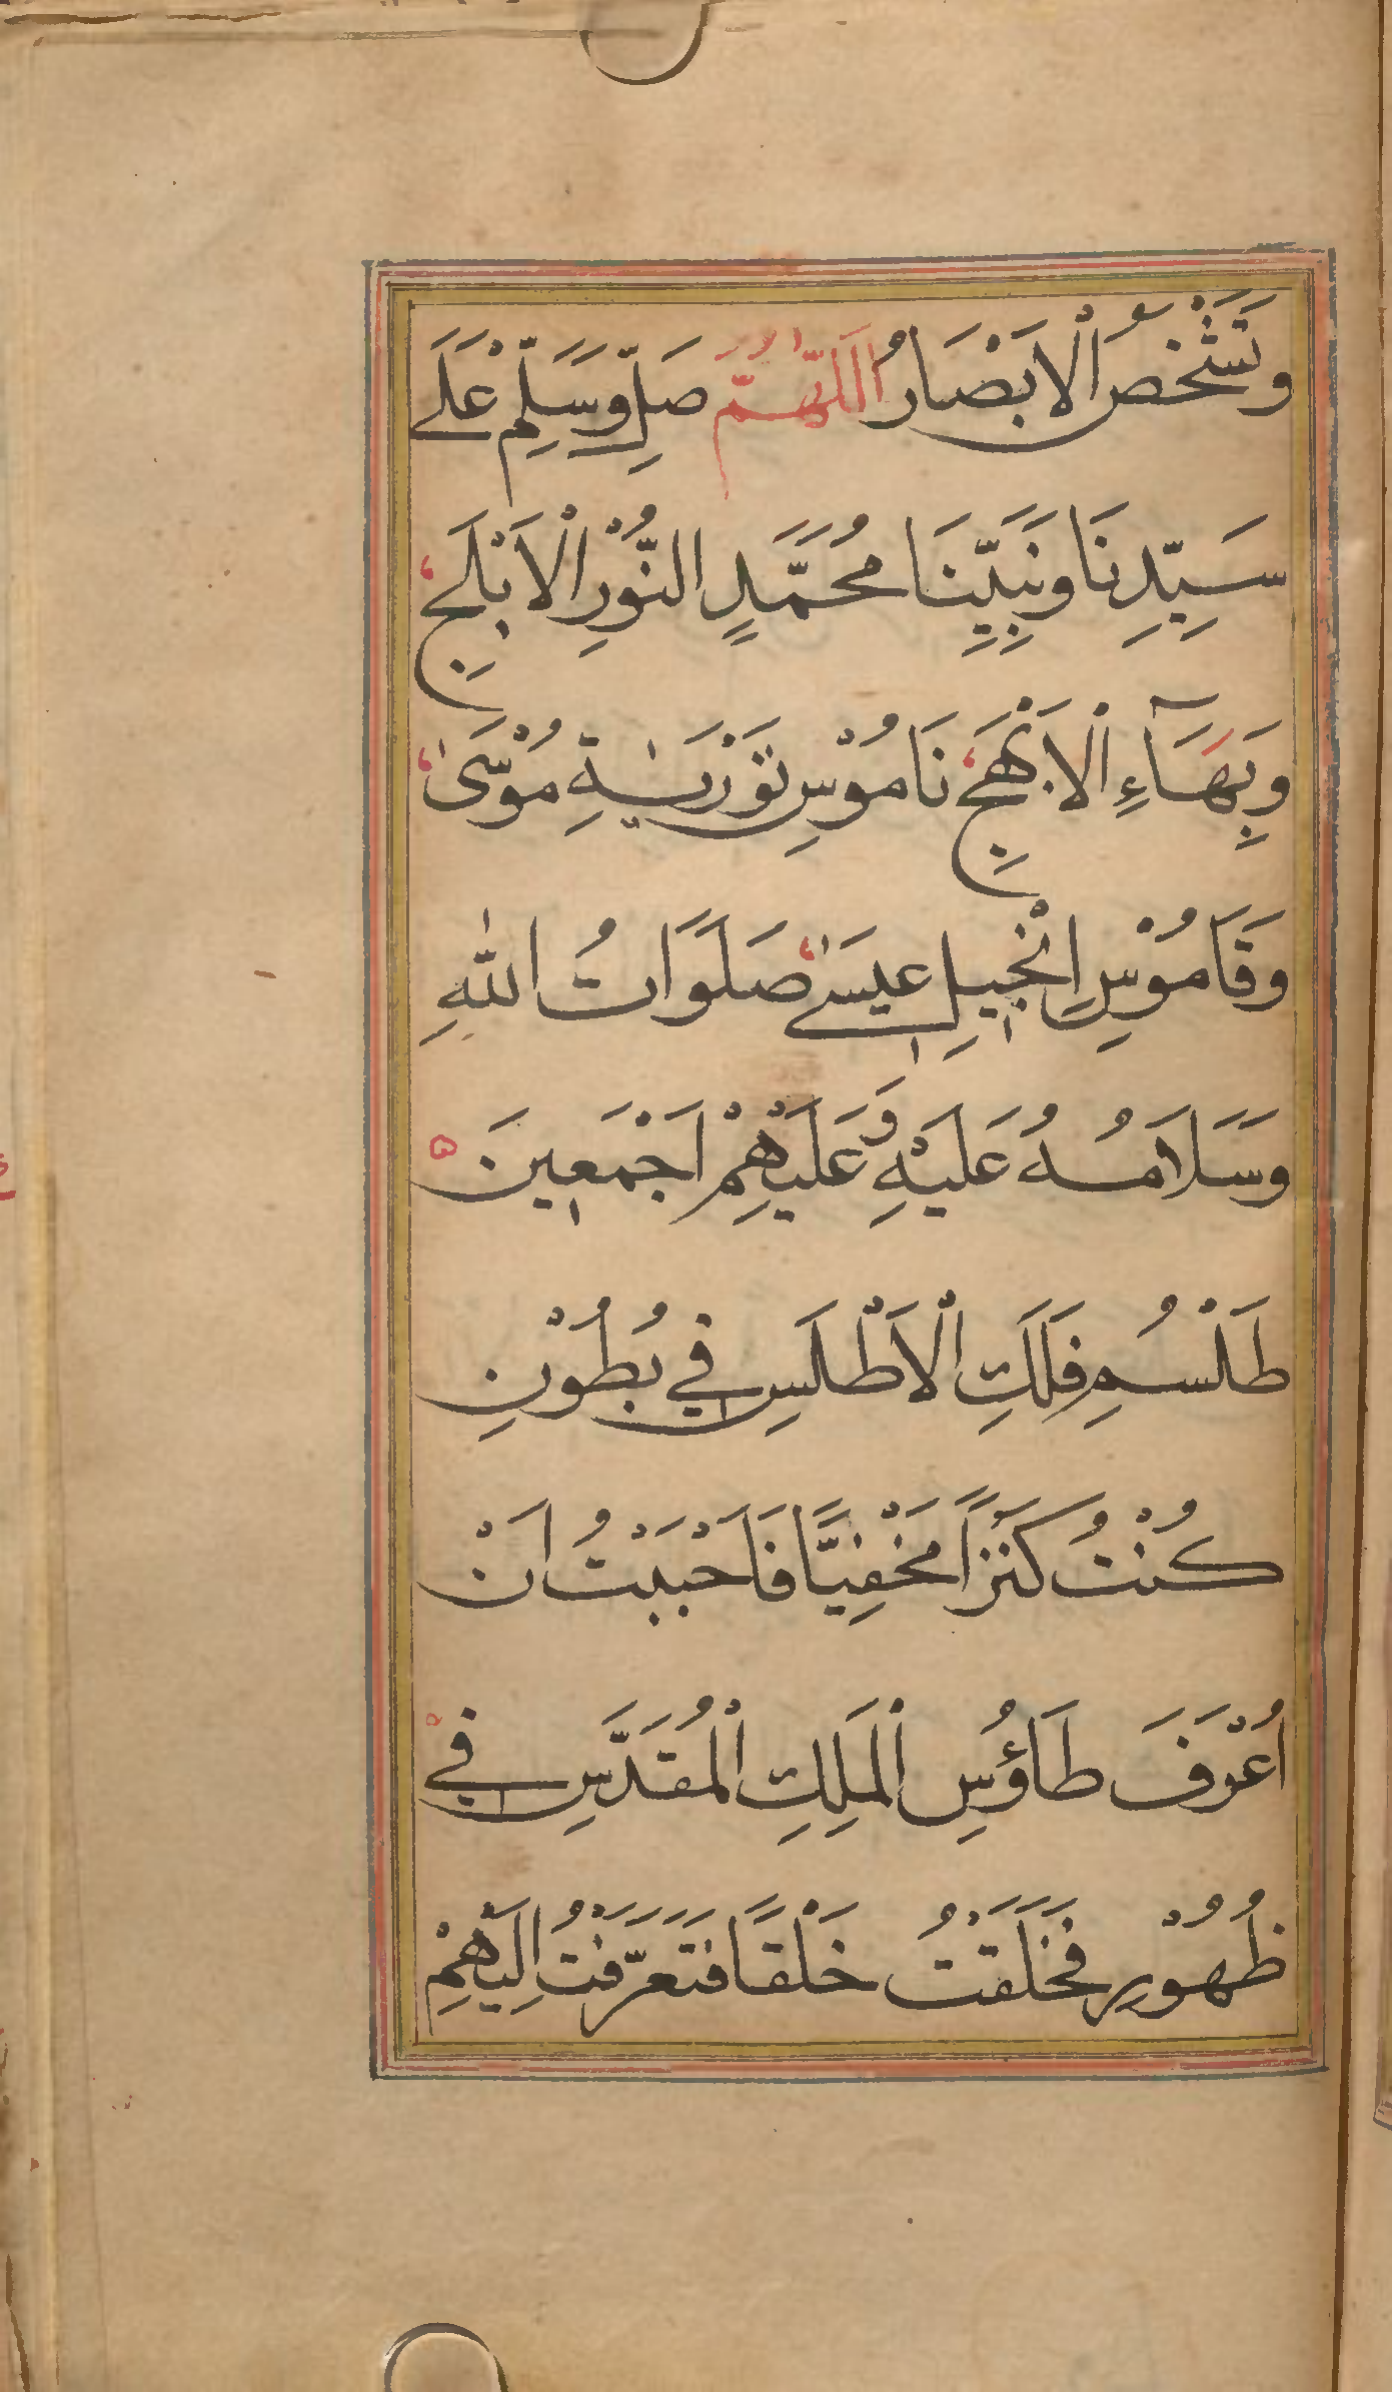 وَتَشْخَصُ الْاَبْصَارُ اَللّٰهُمَّ صَلِّ وَسَلِّمْ عَلَے
سَيِّدِنَا وَنَبِيِّنَا مُحَمَّدٍ النُّوْرِ الْاَبْلَجِ
وَبِهَآءِ الْاَبْهَجِ نَامُوْسِ تَوْرٰيةِ مُوْسٰى
وَقَامُوْسِ اِنْجِيلِ عِيسٰے صَلَوَاتُ اللّٰهِ
وَسَلَامُهُ عَلَيْهِ وَعَلَيْهِمْ اَجْمَعِينَ
طَلْسُمِ فَلَكِ الْاَطْلَسِ فِي بُطُوْنِ
كُنْتُ كَنْزًا مَخْفِيًّا فَاَحْبَبْتُ اَنْ
اُعْرَفَ طَاؤُسِ الْمَلِكِ الْمُقَدَّسِ فِے
ظُهُوْرِ فَخَلَقْتُ خَلْقًا فَتَعَرَّفْتُ اِلَيْهِمْ